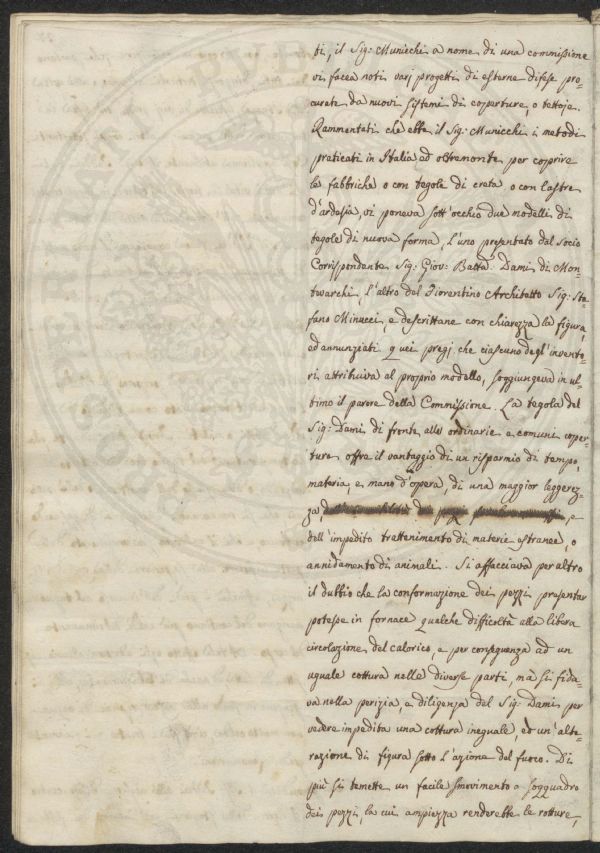 ti, il Sig: Municchi a nome di una commissione
vi facea noti varj progetti di esterne difese pro-
curate da nuovi sistemi di coperture, o tettoje.
Rammentati che ebbe il Sig: Municchi i metodi
praticati in Italia ed oltremonte per coprire
le fabbriche o con tegole di creta, o con lastre
d'ardesia, vi poneva sott'occhio due modelli di
tegole di nuova forma, l'uno presentato dal Socio
Corrispondente Sig: Giov: Batta: Dami di Mon-
tevarchi, l'altro dal Fiorentino Architetto Sig: Ste-
fano Minucci, e descrittane con chiarezza la figura,
ed annunziati quei pregj che ciascuno degl'invento-
ri attribuiva al proprio modello, soggiungeva in ul-
timo il parere della Commissione. La tegola del
Sig: Dami di fronte alle ordinarie e comuni coper-
ture offre il vantaggio di un risparmio di tempo,
materia, e mano d'opera, di una maggior leggerez-
za, e
dell'impedito trattenimento di materie estranee, o
annidamento di animali. Si affacciava per altro
il dubbio che la conformazione dei pezzi presentar
potesse in fornace qualche difficoltà alla libera
circolazione del calorico, e per conseguenza ad un
uguale cottura nelle diverse parti, mà si fida-
va nella perizia, e diligenza del Sig: Dami per
vedere impedita una cottura ineguale, ed un'alte-
razione di figura sotto l'azione del fuoco. Di
più si temette un facile smovimento e soqquadro
dei pezzi, la cui ampiezza renderebbe le rotture,